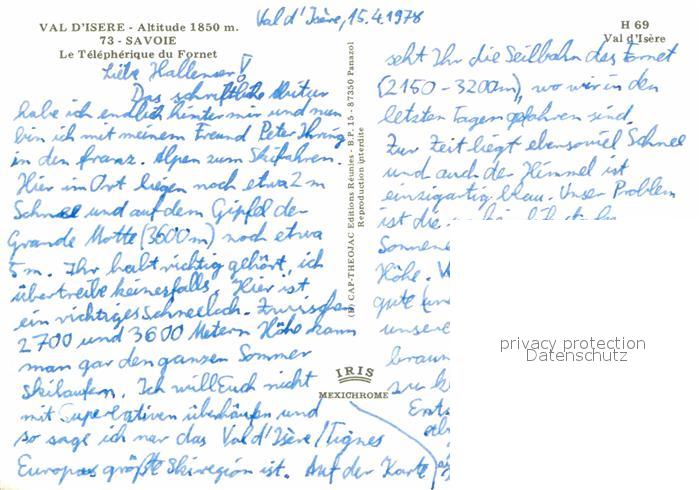 VAL D'ISERE - Altitude 1850 m.
73 - SAVOIE
Le Téléphérique du Fornet
Val d'Isère, 15.4.1978
H 69
Val d'Isère
Liebe Hallenser!
Das schriftliche Abitur
habe ich endlich hinter mir und nun
bin ich mit meinem Freund Peter
in den franz. Alpen zum Skifahren.
Hier im Ort liegen noch etwa 2 m
Schnee und auf dem Gipfel der
Grande Motte (3600m) noch etwa
5 m. Ihr habt richtig gehört, ich
übertreibe keinesfalls. Hier ist
ein richtiges Schneeloch. Zwischen
2700 und 3600 Metern Höhe kann
man gar den ganzen Sommer
Skilaufen. Ich will Euch nicht
mit Superlativen überhäufen und
so sage ich nur das Val d'Isère/Tignes
Europas größte Skiregion ist. Auf der Karte
(c) CAP-THEOJAC Editions Réunies - B.P. 15 - 87350 Panazol
Reproduction interdite
IRIS
MEXICHROME
seht Ihr die Seilbahn des Fornet
(2150 - 3200m), wo wir in den
letzten Tagen gefahren sind.
Zur Zeit liegt ebensoviel Schnee
und auch der Himmel ist
einzigartig blau. Unser Problem
ist die
Sonnene
Höhe.
gute
unsere
braun
privacy protection
Datenschutz